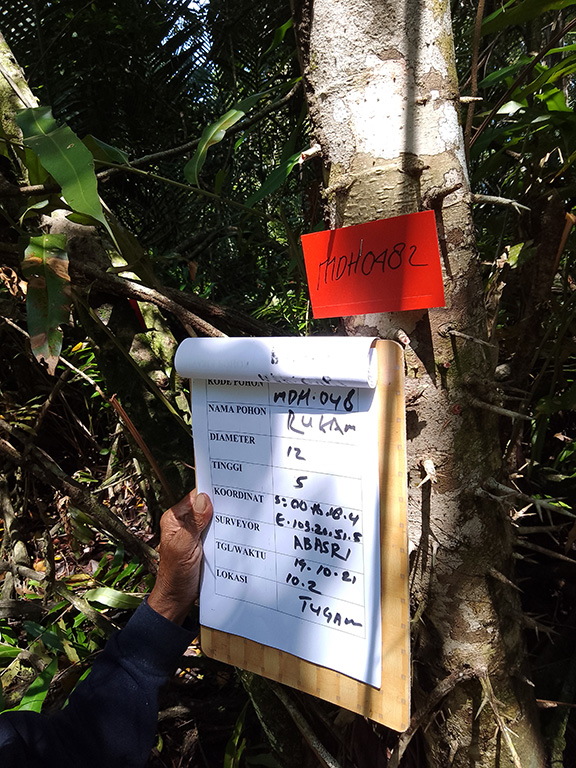 MDH0482
KODE POHON MDH.048
NAMA POHON RUKAM
DIAMETER 12
TINGGI 5
KOORDINAT S:00
E.103.20.51.5
SURVEYOR ABASRI
TGL/WAKTU 19.10.21
10.2
LOKASI TUGAM